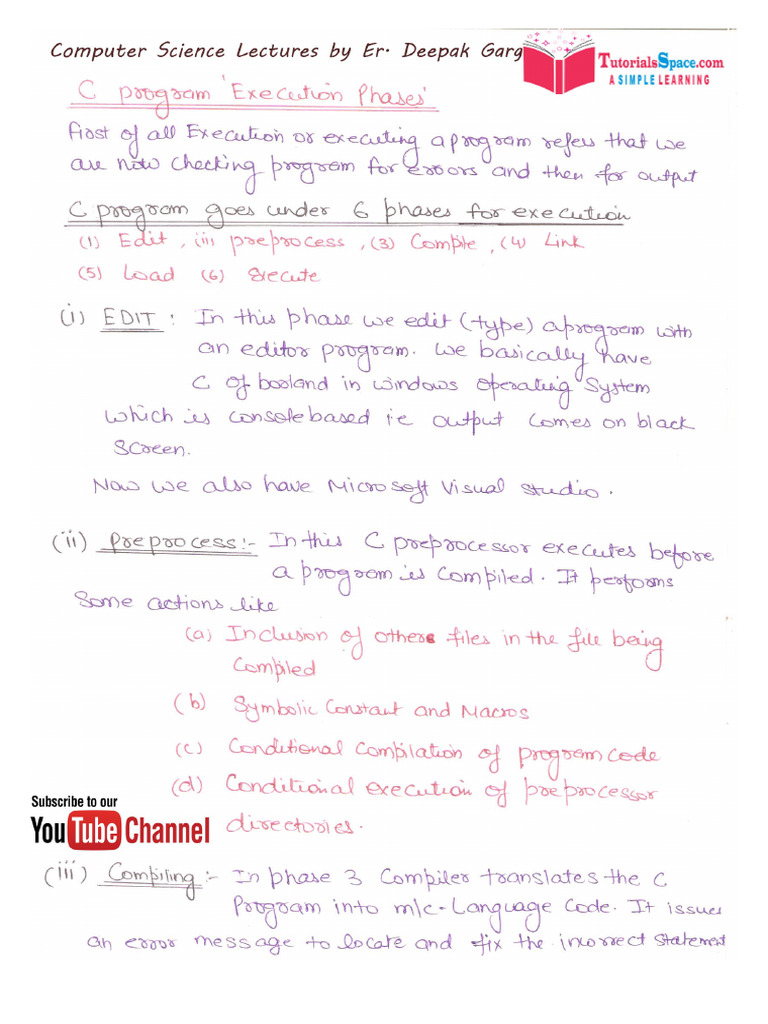 Computer Science Lectures by Er. Deepak Garg
TutorialsSpace.com
A SIMPLE LEARNING
C program 'Execution Phases'
First of all Execution or executing a program refers that we
are now checking program for errors and then for output
C program goes under 6 phases for execution
(1) Edit, (ii) preprocess, (3) Compile, (4) Link
(5) Load (6) Execute
(i) EDIT : In this phase we edit (type) a program with
an editor program. We basically have
C of borland in windows operating System
which is console based ie output comes on black
Screen.
Now we also have Microsoft Visual studio.
(ii) Preprocess:- In this C preprocessor executes before
a program is compiled. It performs
Some actions like
(a) Inclusion of others files in the file being
Compiled
(b) Symbolic Constant and Macros
(c) Conditional Compilation of program code
(d) Conditional execution of preprocessor
directories.
Subscribe to our
YouTube Channel
(iii) Compiling :- In phase 3 Compiler translates the C
Program into m/c-Language Code. It issues
an error message to locate and fix the incorrect statement